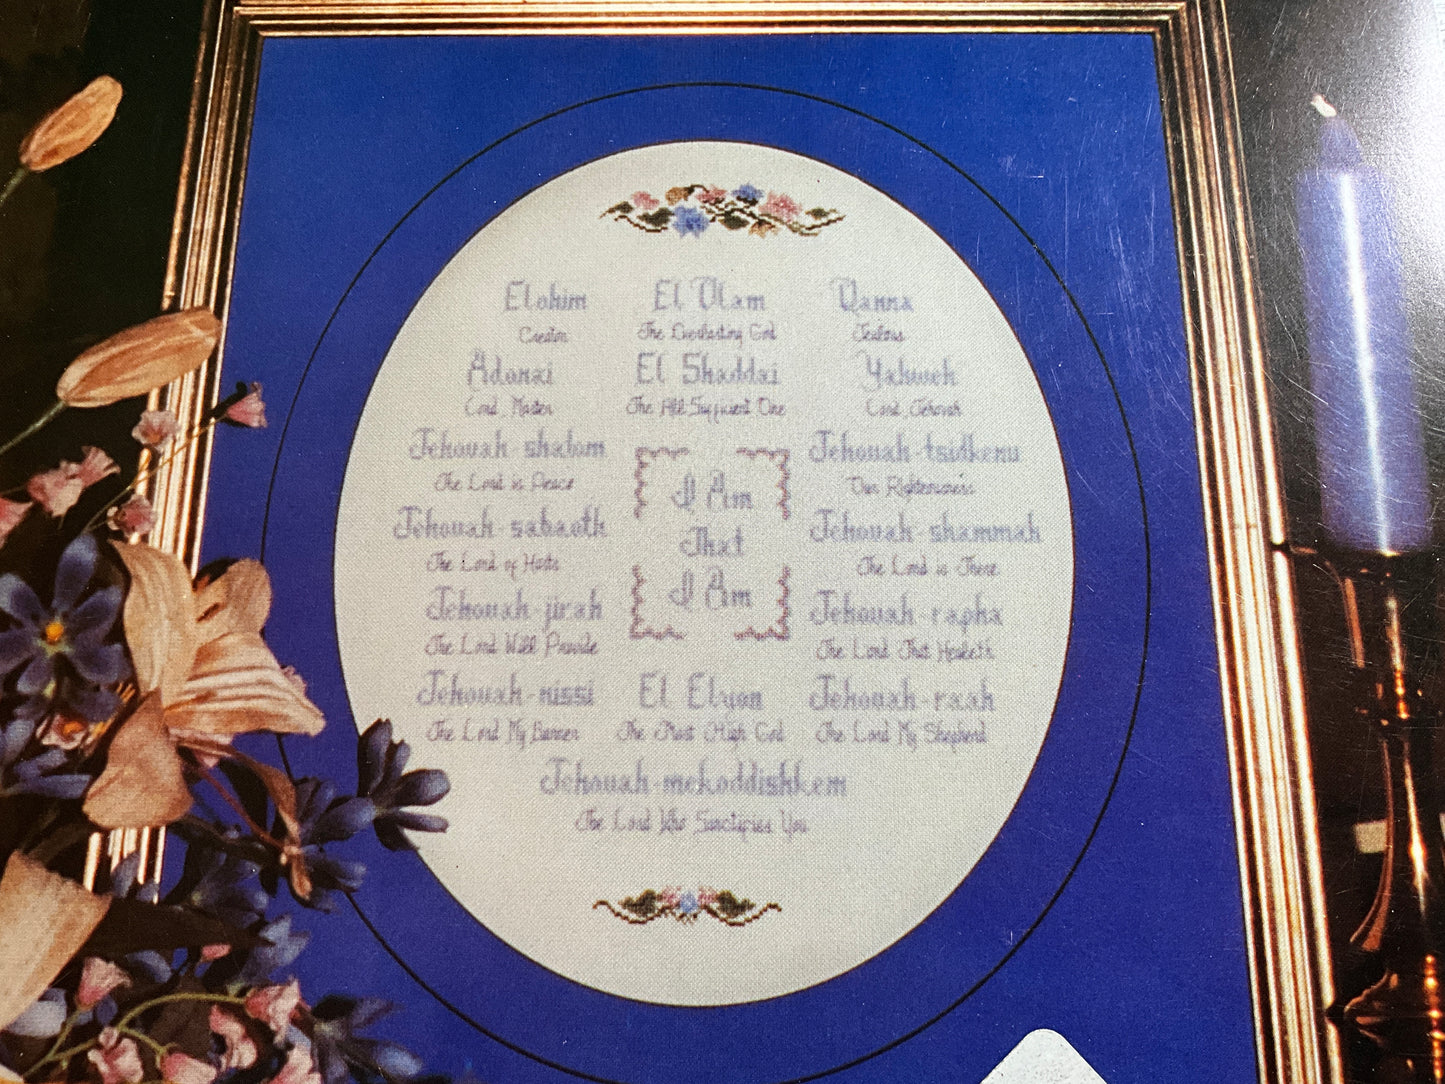 Elohim El Olam Qanna
Creator The Everlasting God Jealous
Adonai El Shaddai Yahweh
Lord, Master The All Sufficient One Lord, Jehovah
Jehovah-shalom Jehovah-tsidkenu
The Lord is Peace Our Righteousness
I Am
Jehovah-sabaoth Jehovah-shammah
That
The Lord of Hosts The Lord is There
I Am
Jehovah-jirah Jehovah-rapha
The Lord Will Provide The Lord That Healeth
Jehovah-nissi El Elyon Jehovah-raah
The Lord My Banner The Most High God The Lord My Shepherd
Jehovah-mekoddishkem
The Lord Who Sanctifies You